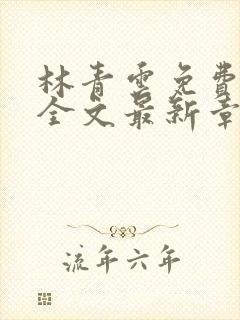 林青云免费
全文最新章
流年六年